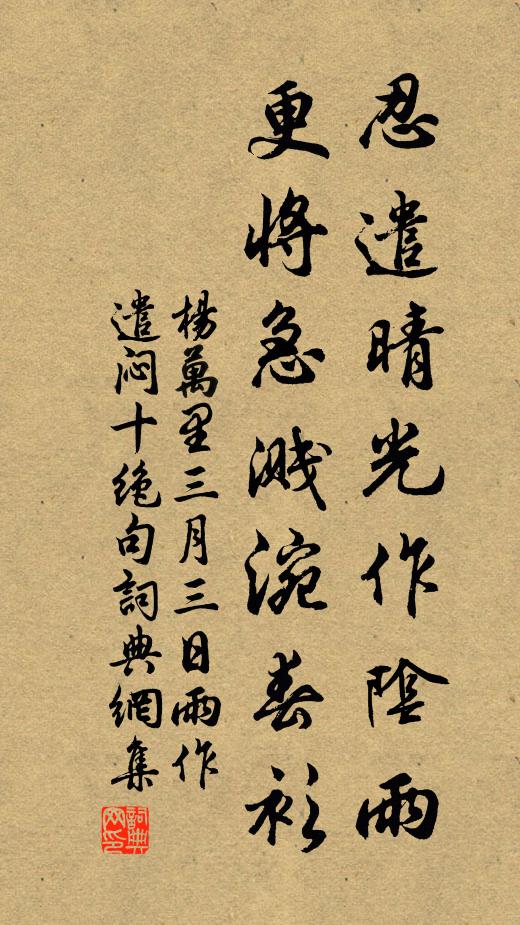 忍遣晴光作陰雨
更將急濺涴春衫
楊萬里三月三日雨作
遣悶十絶句詞典網集
詞典
网印